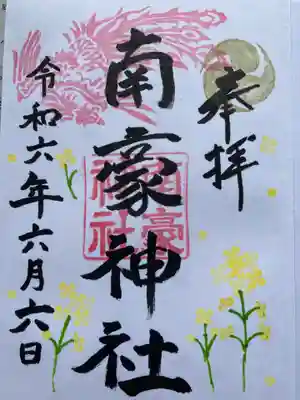 奉拝
南豪神社
南豪
神社
令和六年六月六日